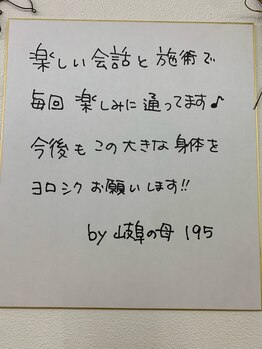 楽しい会話と施術で
毎回 楽しみに通ってます♪
今後も この大きな身体を
ヨロシク お願いします!!
by 岐阜の母 195